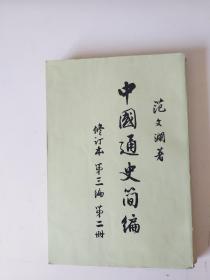 范文澜著
中國通史简编
修订本 第三编 第二册